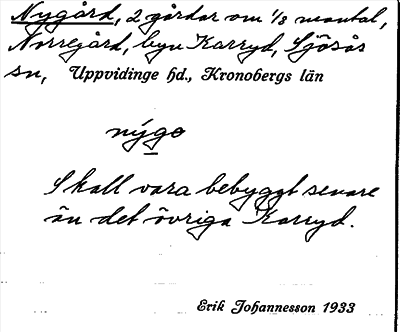 Nygård, 2 gårdar om 1/8 mantal,
Norregård, byn Karryd, Sjösås
sn, Uppvidinge hd., Kronobergs län
nýgo
Skall vara bebyggt senare
än det övriga Karryd.
Erik Johannesson 1933